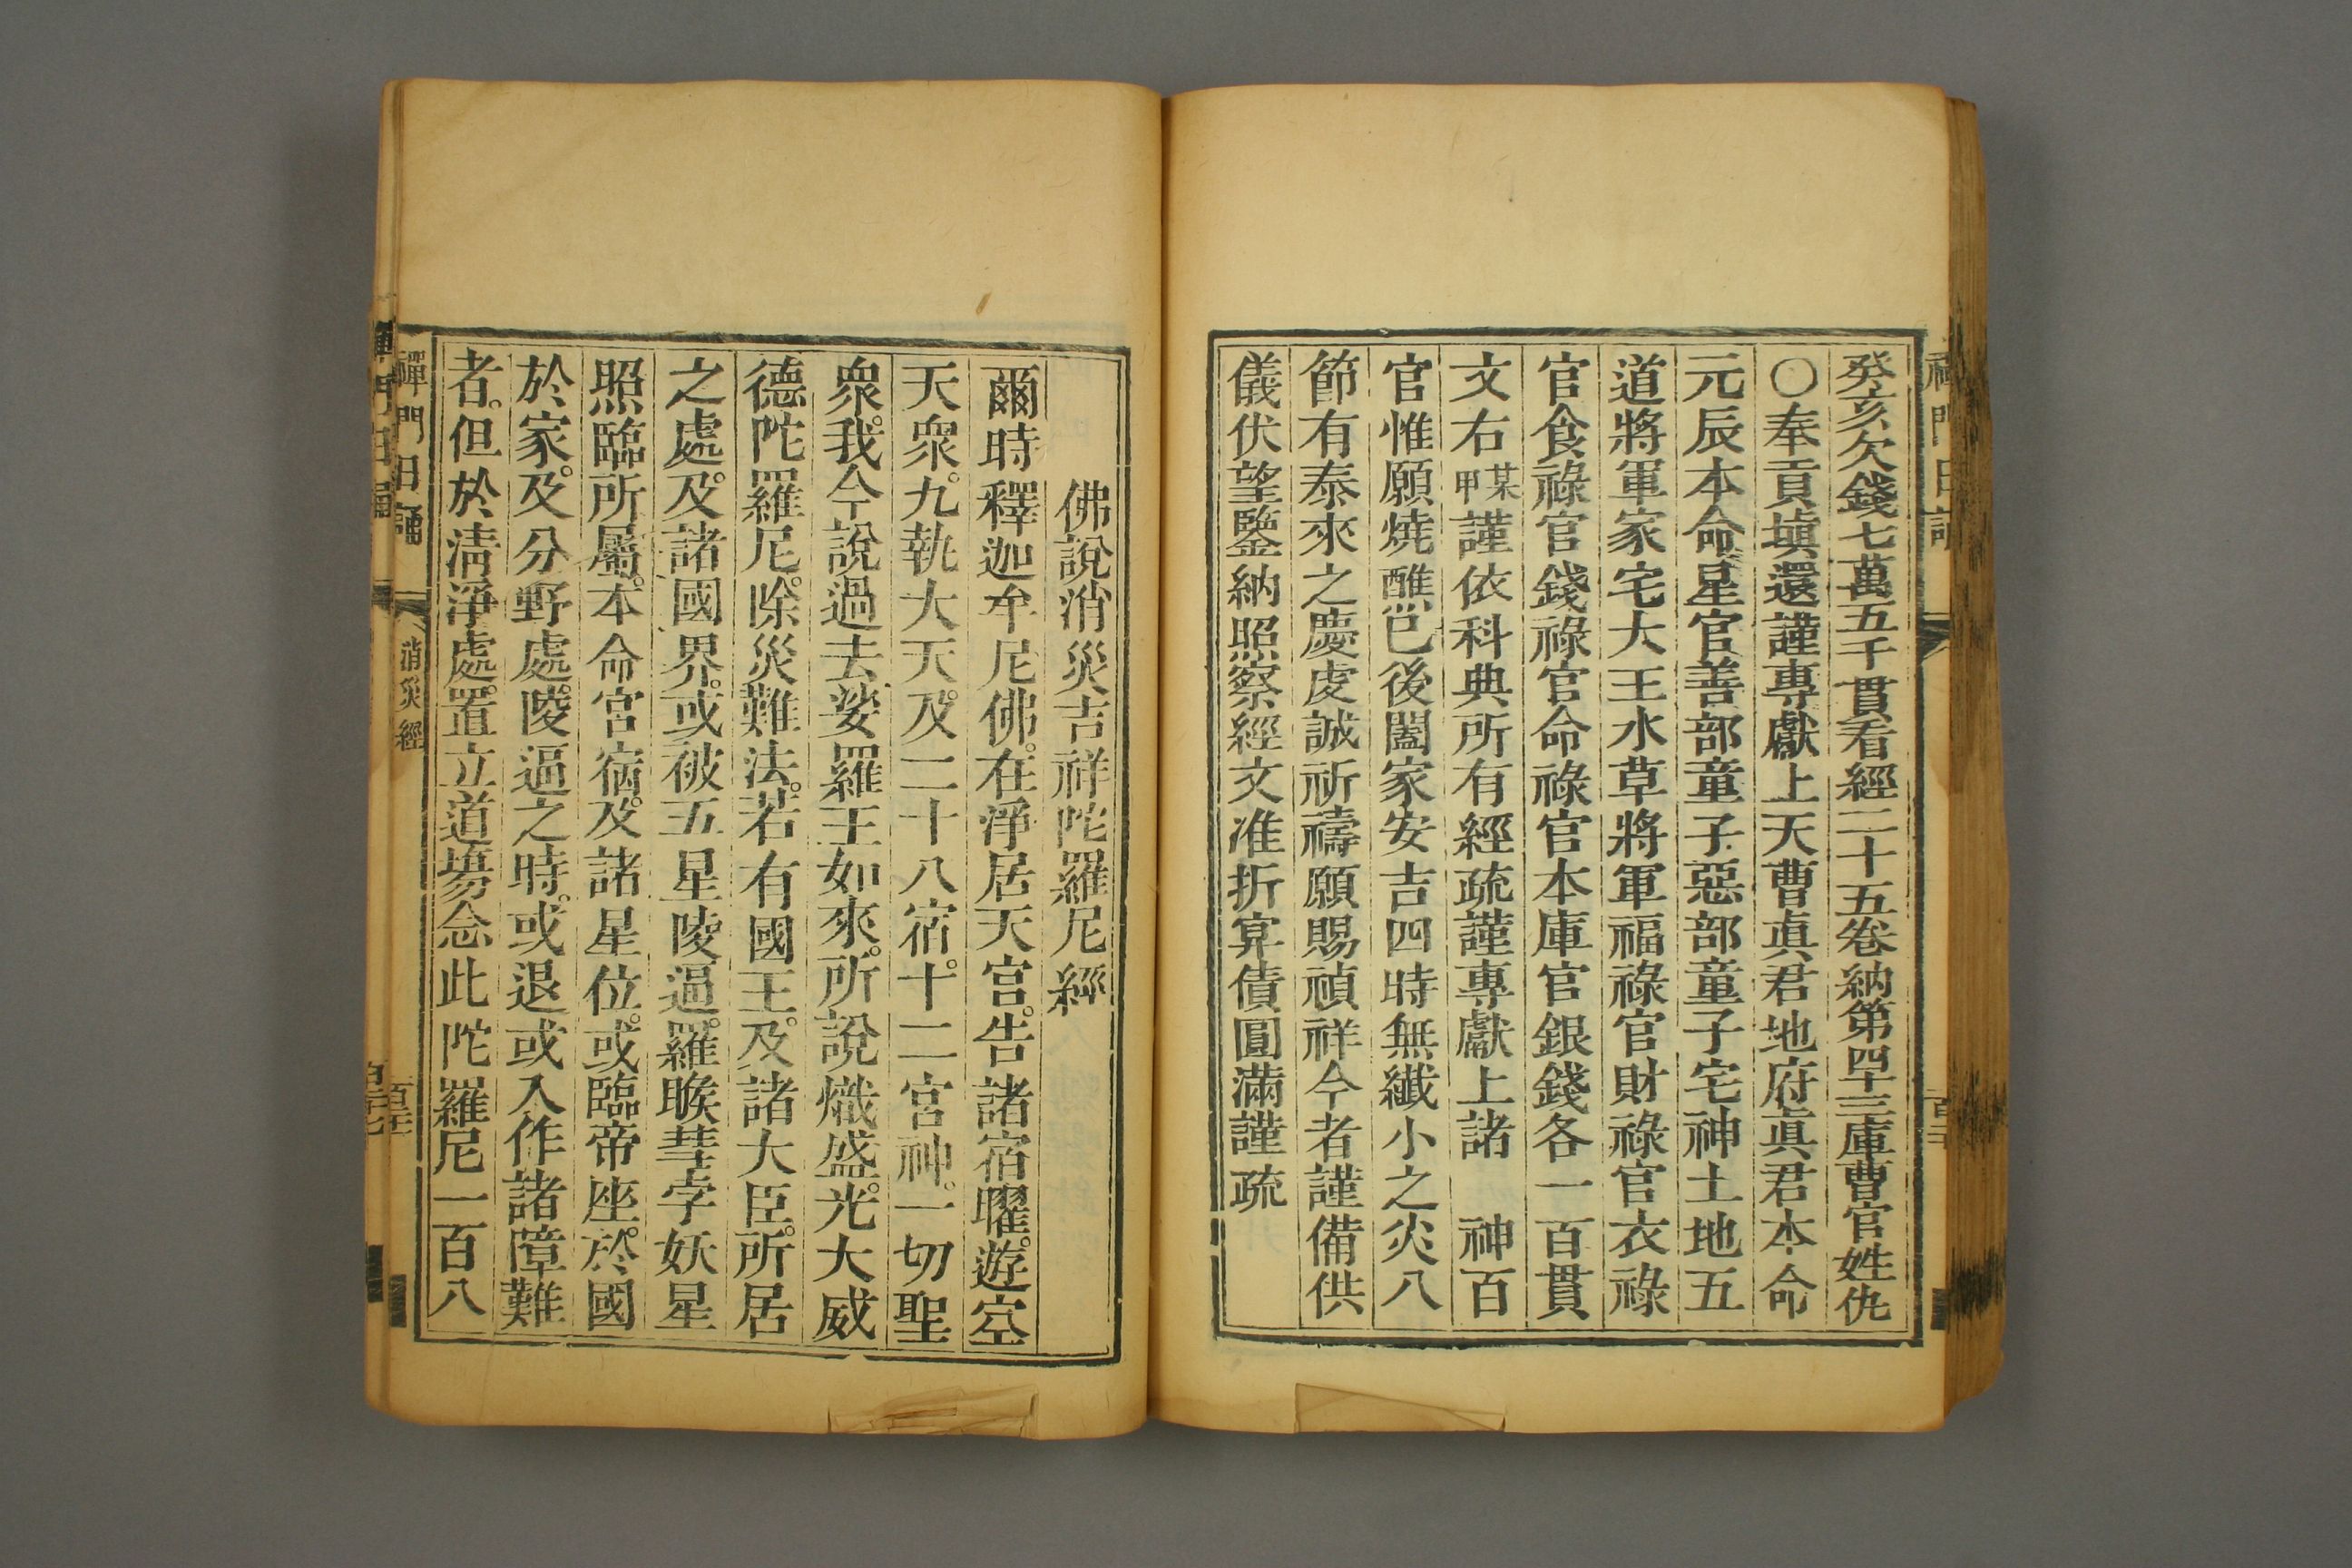 癸亥欠錢七萬五千貫看經二十五卷納第四十三庫曹官姓仇
〇奉貢塡還謹專獻上天曹眞君地府眞君本命
元辰本命星官善部童子惡部童子宅神土地五
道將軍家宅大王水草將軍福祿官財祿官衣祿
官食祿官錢祿官命祿官本庫官銀錢各一百貫
文右某甲謹依科典所有經疏謹專獻上諸 神百
官惟願燒醮已後闔家安吉四時無纖小之灾八
節有泰來之慶虔誠祈禱願賜禎祥今者謹備供
儀伏望鑒納照察經文准折筭債圓滿謹疏
佛說消災吉祥陀羅尼經
爾時釋迦牟尼佛。在淨居天宮。告諸宿曜。遊空
天衆。九執大天。及二十八宿。十二宮神。一切聖
衆。我今說過去娑羅王如來。所說熾盛光大威
德陀羅尼。除災難法。若有國王。及諸大臣。所居
之處。及諸國界。或被五星陵逼。羅睺彗孛妖星
照臨所屬。本命宮宿。及諸星位。或臨帝座。於國
於家。及分野處。陵逼之時。或退或入作諸障難
者。但於淸淨處。置立道場。念此陀羅尼一百八
禪門日誦
消災經